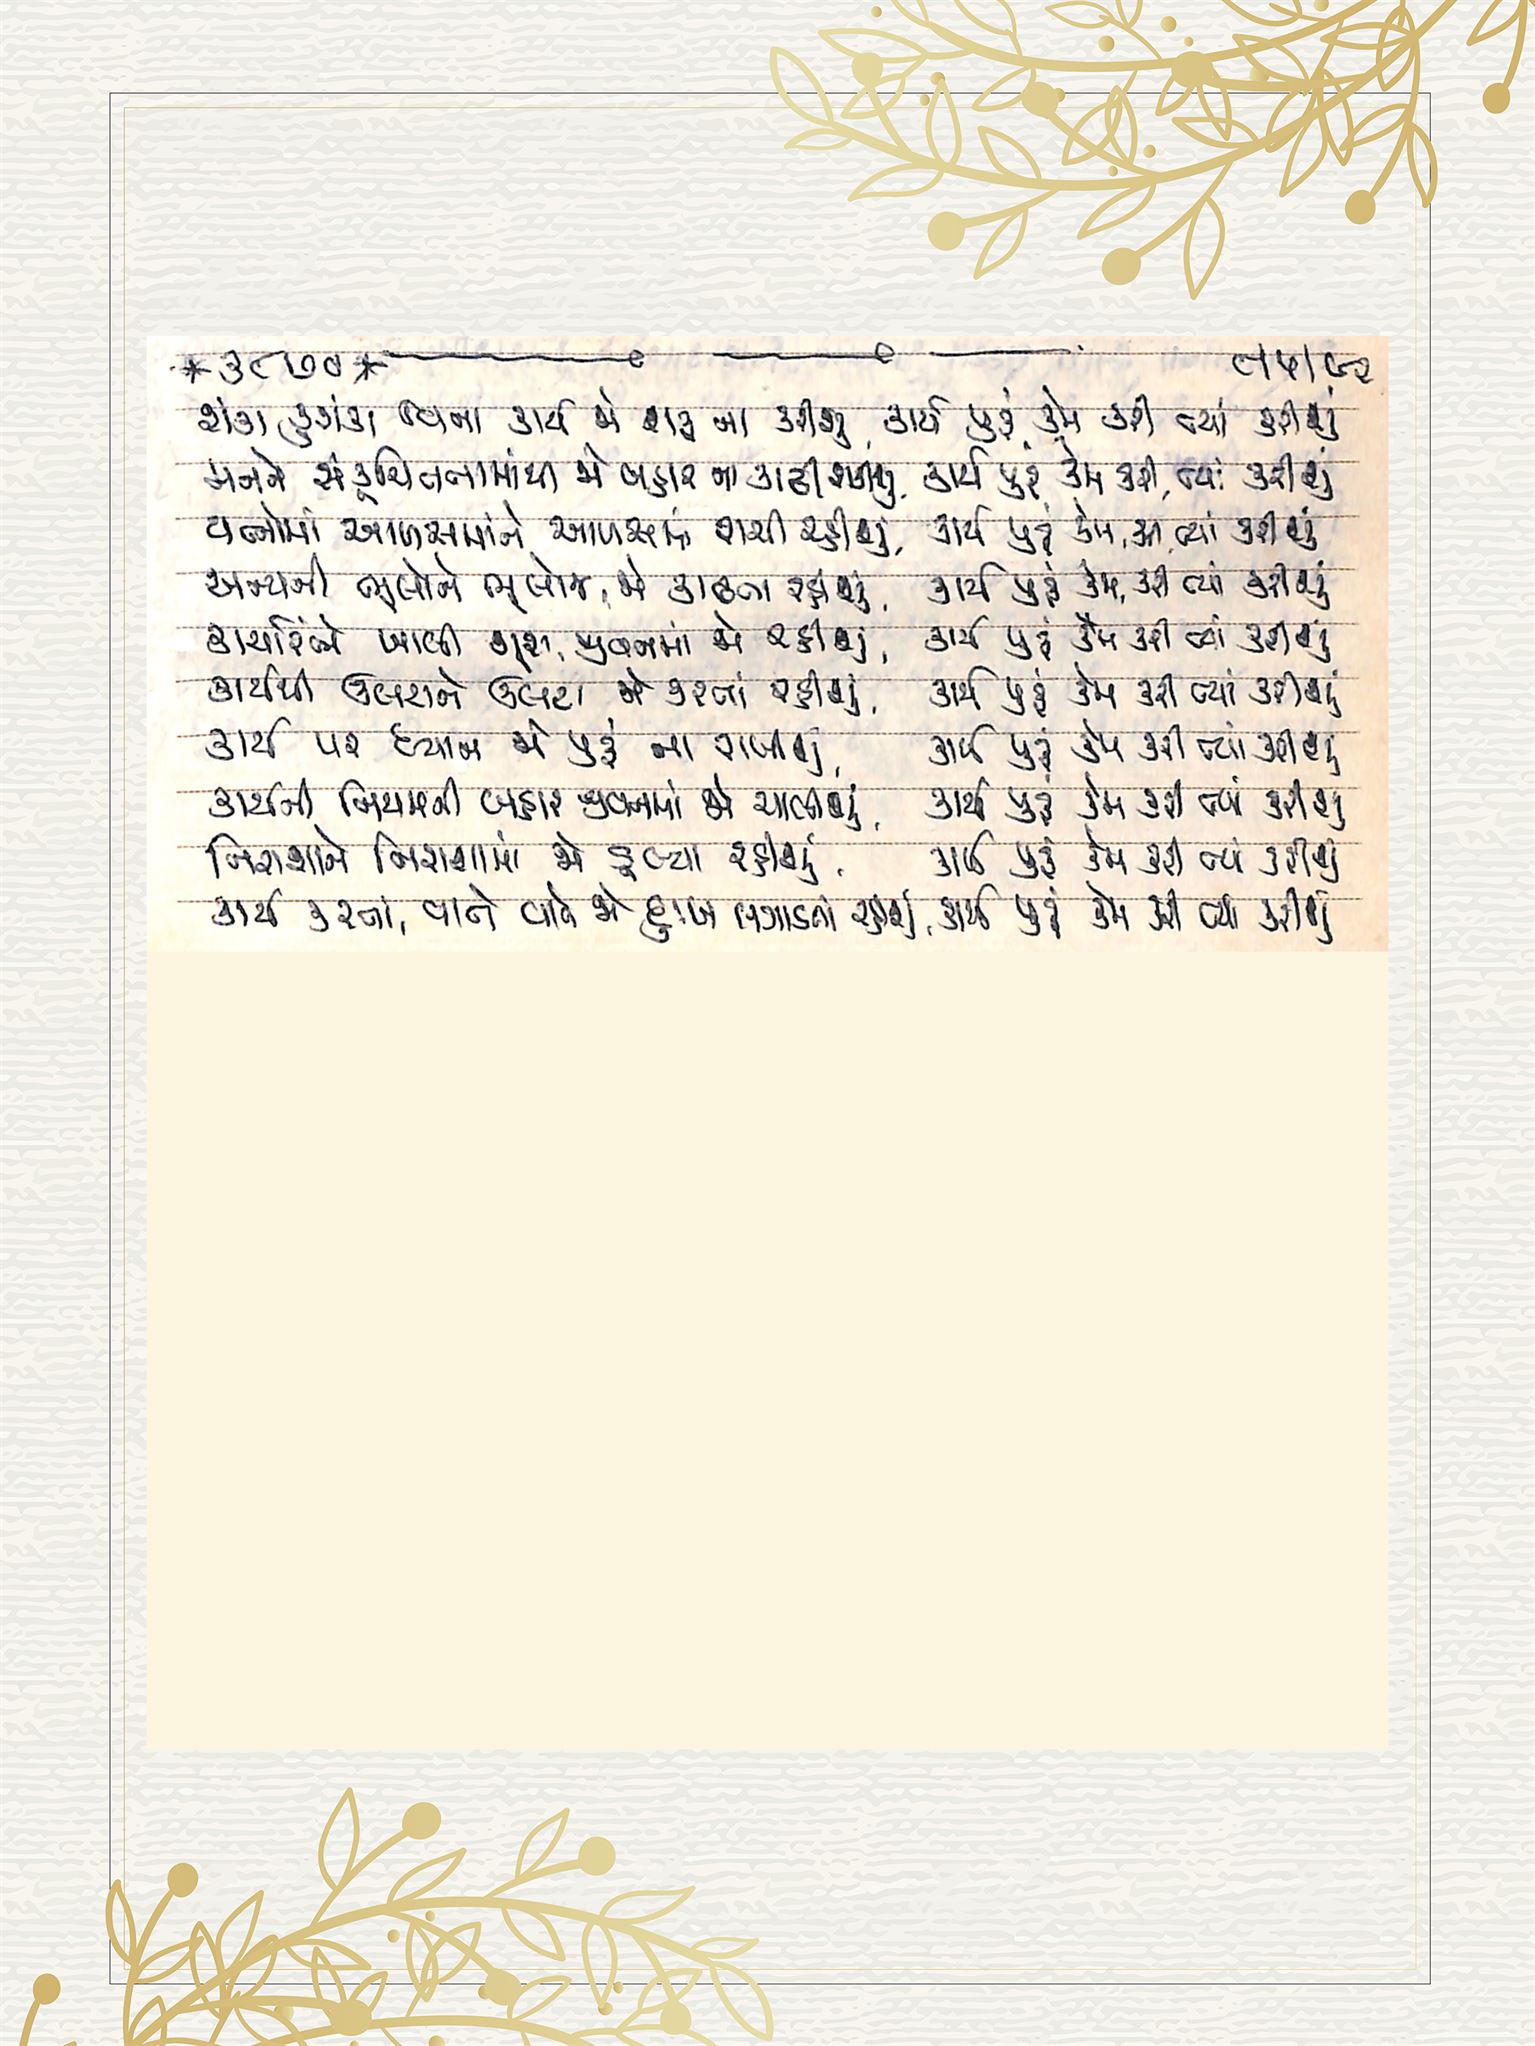 *૩૮૭૦* ૮|૫|૯૨
શંકા કુશંકા વિના કાર્ય જો શરૂ ના કરીશું, કાર્ય પુરૂં કેમ કરી ત્યાં કરીશું
મનને સંકૂચિતતામાંથી જો બહાર ના કાઢી શકીશું, કાર્ય પુરૂં કેમ કરી, ત્યાં કરીશું
યત્નોમાં આળસમાંને આળસમાં રાચી રહીશું, કાર્ય પુરૂં કેમ, કરી, ત્યાં કરીશું
અન્યની ભુલોને ભૂલોજ, જો કાઢતા રહીશું, કાર્ય પુરૂં કેમ, કરી ત્યાં કરીશું
ખાલી જીવનમાં જો રહીશું, કાર્ય પુરૂં કેમ કરી ત્યાં કરીશું
કાર્યથી ઉલટાને ઉલટા જો કરતાં રહીશું, કાર્ય પુરૂં કેમ કરી ત્યાં કરીશું
કાર્ય પર ધ્યાન જો પુરૂં ના રાખીશું, કાર્ય પુરૂં કેમ કરી ત્યાં કરીશું
કાર્યની નિયમની બહાર જીવનમાં જો ચાલીશું, કાર્ય પુરૂં કેમ કરી ત્યાં કરીશું
નિરાશાને નિરાશામાં જો ડૂબ્યા રહીશું, કાર્ય પુરૂં કેમ કરી ત્યાં કરીશું
કાર્ય કરતા, વાતે વાતે જો દુઃખ લગાડતા રહીશું, કાર્ય પુરૂં કેમ કરી ત્યાં કરીશું